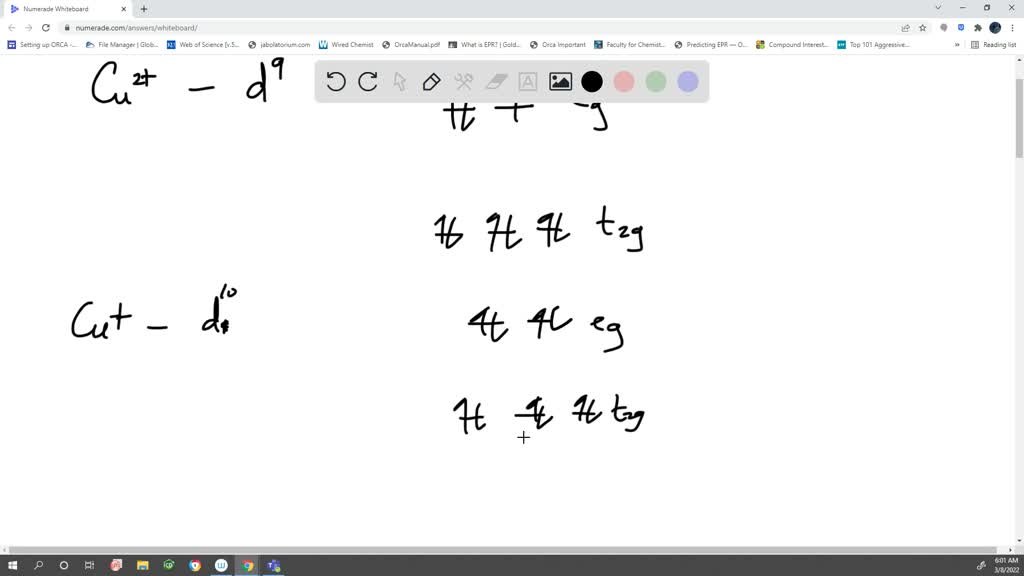 Numerade Whiteboard
numerade.com/answers/whiteboard/
Setting up ORCA -... File Manager | Glob... Web of Science [v.5... jabolatorium.com Wired Chemist OrcaManual.pdf What is EPR? | Gold... Orca Important Faculty for Chemist... Predicting EPR — O... Compound Interest... Top 101 Aggressive... » Reading list
Cu²⁺ – d⁹
eg
t₂g
Cu⁺ – d¹⁰
eg
t₂g
6:01 AM
3/8/2022